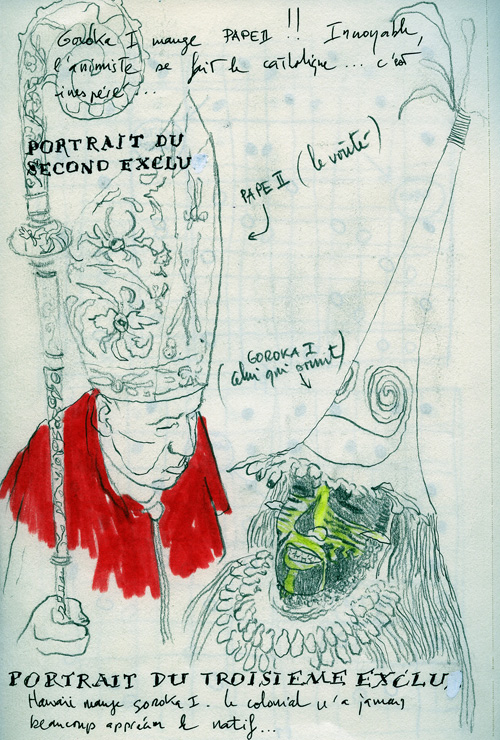 Goroka I mange PAPE II !! Incroyable,
l'animiste se fait le catholique ... c'est
inespéré ...
PORTRAIT DU
SECOND EXCLU
PAPE II (le voûté)
GOROKA I
(celui qui sourit)
PORTRAIT DU TROISIEME EXCLU
Hawaii mange Goroka I. le colonial n'a jamais
beaucoup apprécié le natif...